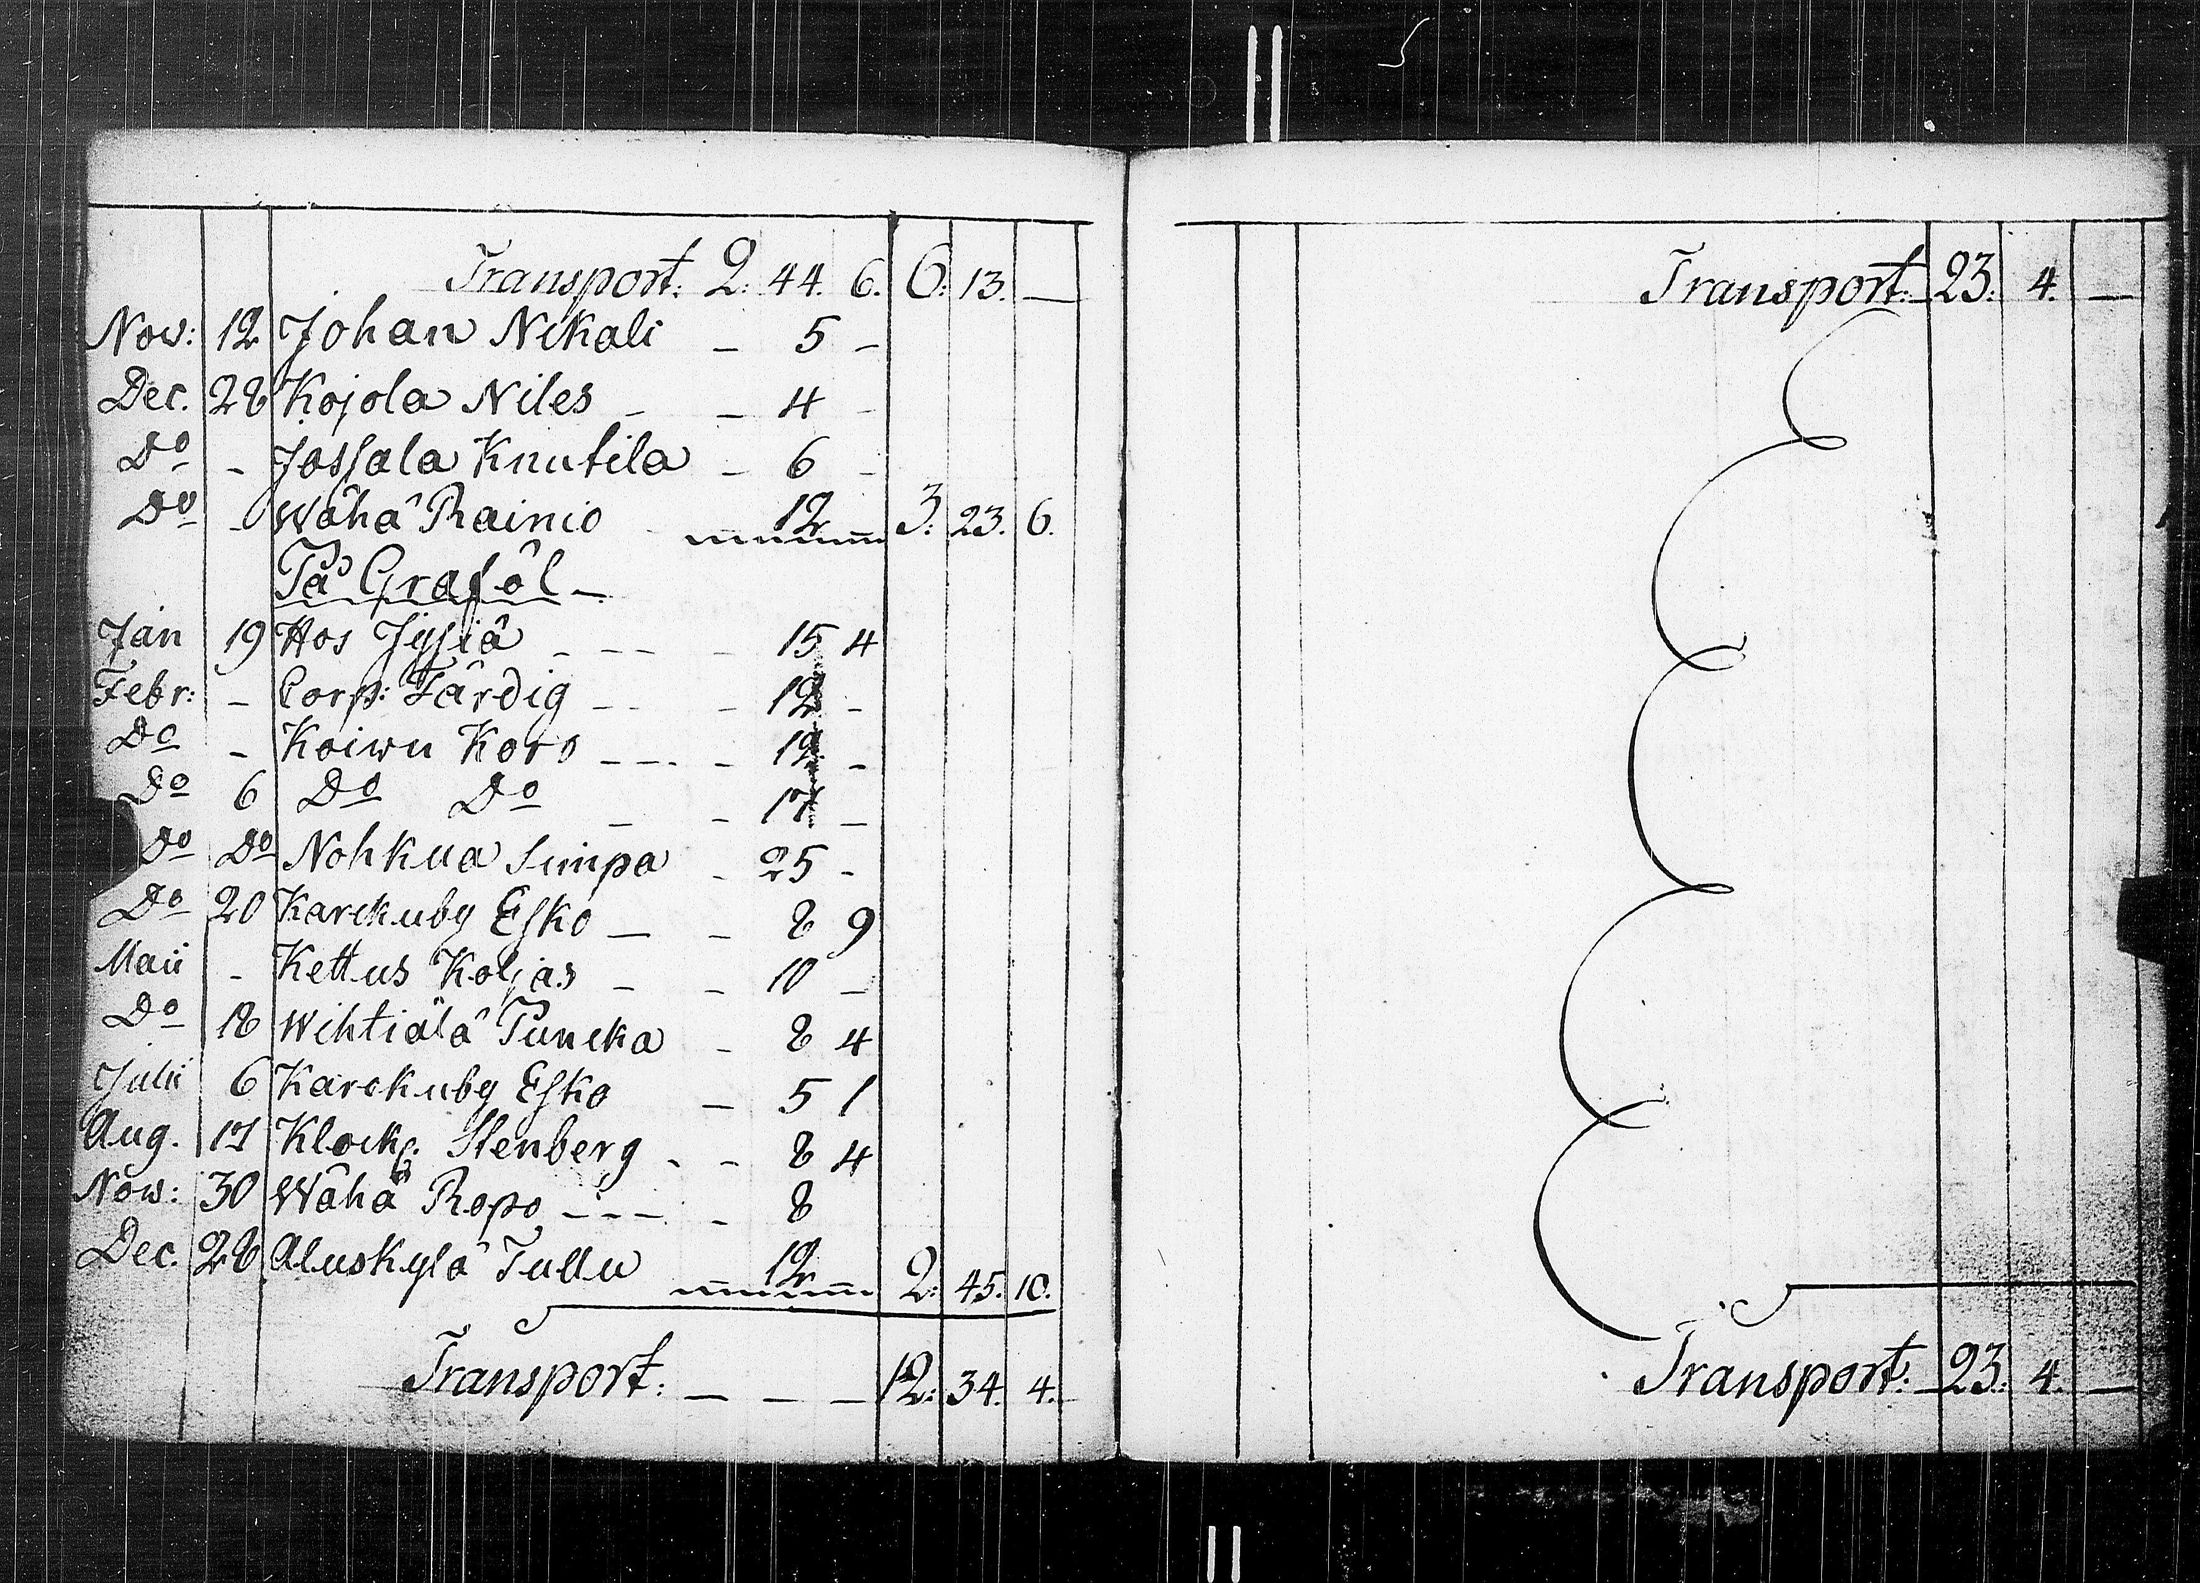 Transport: 2: 44. 6. 6: 13. —
Nov: 12 Johan Nikali – 5 –
Dec. 28 Kojola Niles – – 4 –
Do – Jossala Knutila – 6 –
Do – Wähä Rainio – 12 3: 23. 6.
På Graföl –
Jan 19 Hos Jysiä – – – – 15 4
Febr: – Corp: Färdig – – – 12 –
Do – Koiwu Koro – – – – 12 –
Do 6 Do Do – – 17 –
Do Do Nohkua Simpa – 25 –
Do 20 Karckuby Esko — – 8 9
Maii – Kettus Koljas – – 10 –
Do 18 Wihtiälä Tuncka – 8 4
Julii 6 Karckuby Esko — 5 1
Aug. 17 Klock: Stenberg – – 8 4
Now: 30 Wähä Ropo – – – – 8
Dec. 28 Aluskylä Tullu 12 2: 45. 10.
Transport: — — — 12: 34. 4.
Transport: 23: 4. —
Transport: 23: 4. —